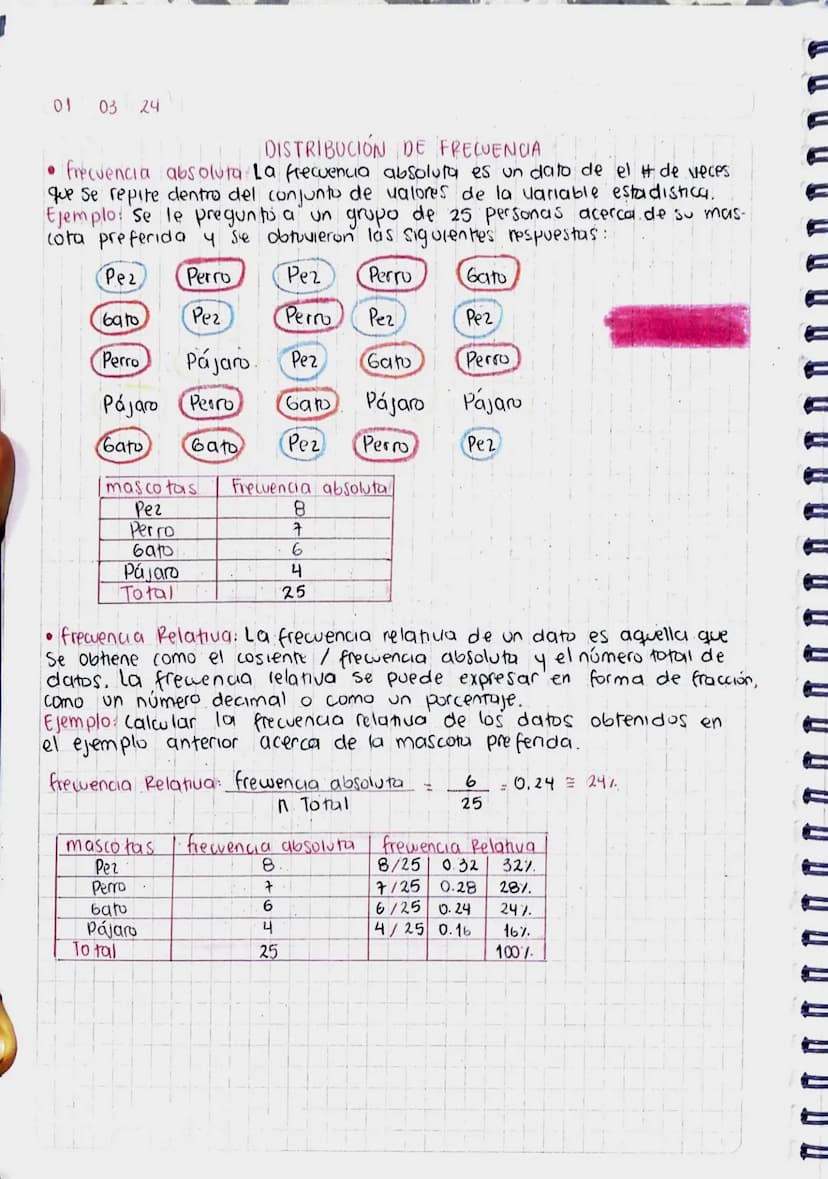 01 03 24
DISTRIBUCIÓN DE FRECUENCIA
• Frecuencia absoluta: La frecuencia absoluta es un dato de el # de veces
que se repite dentro del conjunto de valores de la variable estadistica.
Ejemplo: Se le preguntó a un grupo de 25 personas acerca de su mas-
cota preferida y se obtuvieron las siguientes respuestas:
Pez Perro Pez Perro Gato
Gato Pez Perro Pez Pez
Perro Pájaro. Pez Gato Perro
Pájaro Perro Gato Pájaro Pájaro
Gato Gato Pez Perro Pez
mascotas Frecuencia absoluta
Pez 8
Perro 7
Gato 6
Pájaro 4
Total 25
• Frecuencia Relativa: La frecuencia relativa de un dato es aquella que
se obtiene como el cosiente / frecuencia absoluta y el número total de
datos. La frecuencia relativa se puede expresar en forma de fracción,
como un número decimal o como un porcentaje.
Ejemplo: Calcular la frecuencia relativa de los datos obtenidos en
el ejemplo anterior acerca de la mascota preferida.
Frecuencia Relativa: frecuencia absoluta / n Total = 6/25 = 0.24 ≅ 24%
mascotas frecuencia absoluta frecuencia Relativa
Pez 8 8/25 0.32 32%
Perro 7 7/25 0.28 28%
Gato 6 6/25 0.24 24%
Pájaro 4 4/25 0.16 16%
Total 25 100%